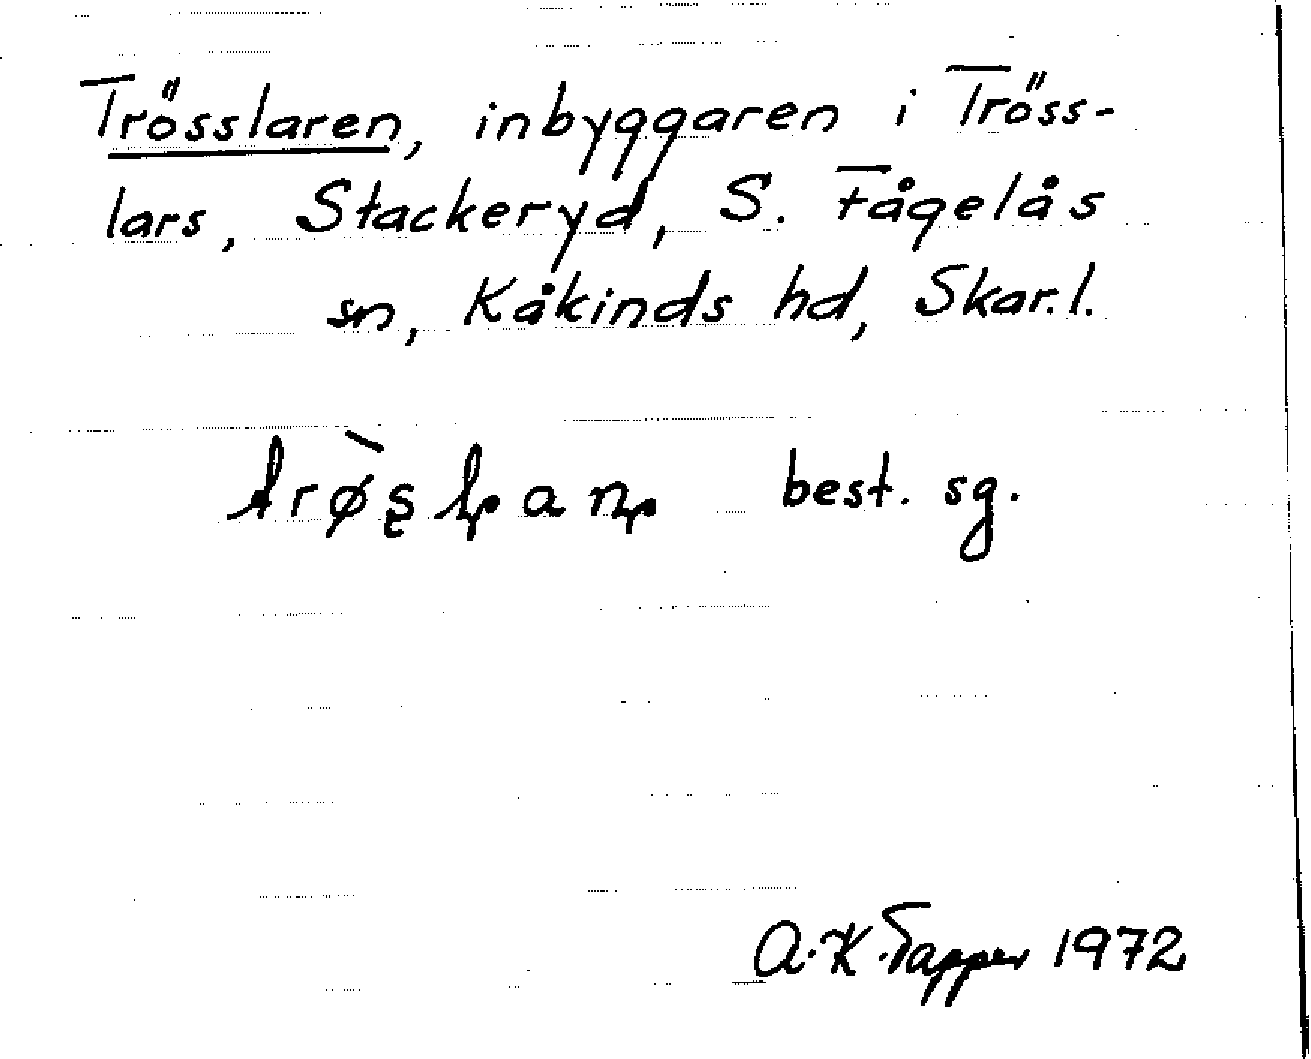 Trösslaren, inbyggaren i Tröss-
lars, Stackeryd, S. Fågelås
sn, Kåkinds hd, Skar.l.
best. sg.
A.K. Tapper 1972